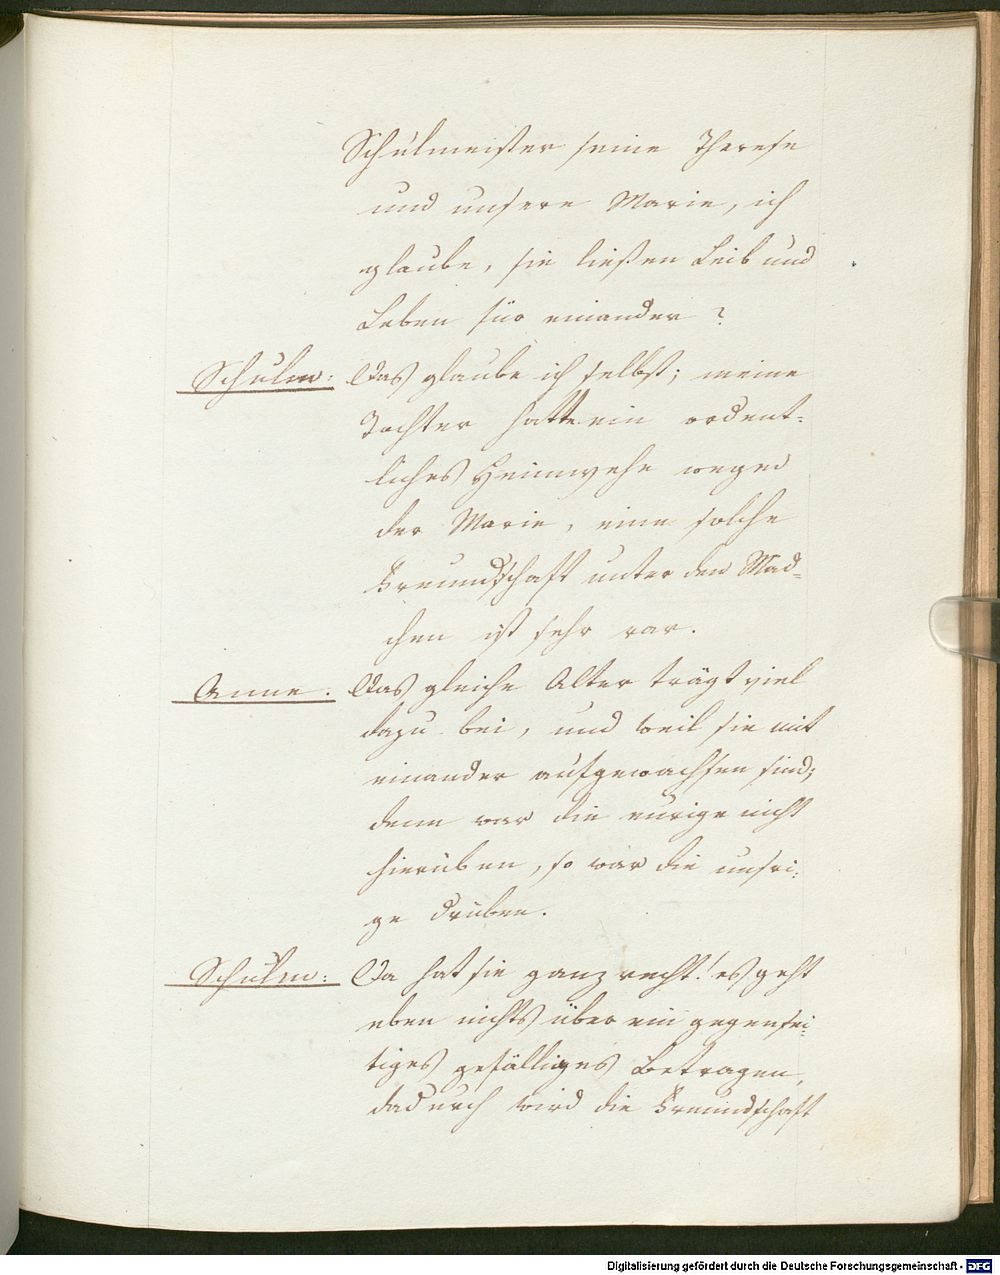 Schulmeister seine Therese
und unsere Marie, ich
glaube, sie ließen Leib und
Leben für einander?
Schulm: Das glaube ich selbst; meine
Tochter hatte ein ordent-
liches Heimwehe wegen
der Marie, eine solche
Freundschaft unter den Mäd-
chen ist sehr rar.
Anne: Das gleiche Alter trägt viel
dazu bei, und weil sie mit
einander aufgewachsen sind;
denn war die eurige nicht
hierüben, so war die unsri-
ge drüben.
Schulm: Da hat sie ganz recht! es geht
eben nichts über ein gegensei-
tiges gefälliges Betragen,
dadurch wird die Freundschaft
Digitalisierung gefördert durch die Deutsche Forschungsgemeinschaft - DFG